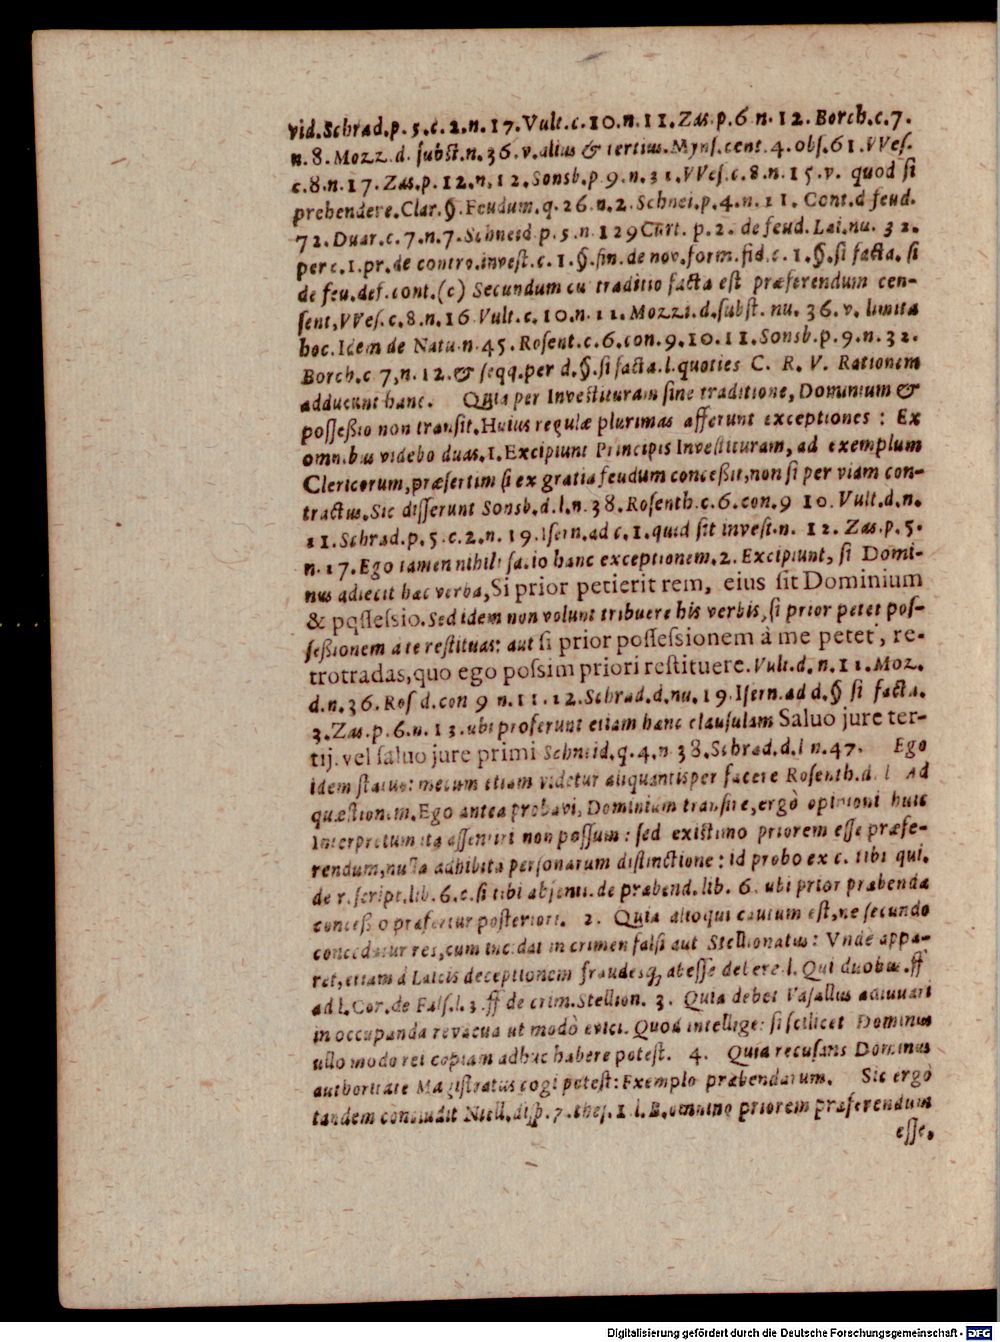 vid.Schrad.p.5.c.2.n.17.Vult.c.10.n.11.Zas.p.6.n.12.Borch.c.7.
n.8.Mozz.d.subst.n.36.v.alius & tertius.Myns.cent.4.obs.61.VVes.
c.8.n.17.Zas.p.12.n.12.Sonsb.p.9.n.31.VVes.c.8.n.15.v. quod si
prehendere.Clar.§.Feudum.q.26.n.2.Schnei.p.4.n.11. Cont.d feud.
72.Duar.c.7.n.7.Schneid.p.5.n.129 Curt. p.2. de feud. Lai.nu. 32.
per c.1.pr.de contro.invest.c.1.§.fin.de nov.form.fid.c.1.§.si facta. si
de feu.def.cont.(c) Secundum cu traditio facta est præferendum cen-
sent,VVes.c.8.n.16 Vult.c.10.n.11.Mozzi.d.subst. nu. 36.v. limita
hoc.Idem de Natu.n.45.Rosent.c.6.con.9.10.11.Sonsb.p.9.n.32.
Borch.c 7,n.12.& seqq.per d.§.si facta.l.quoties C. R. V. Rationem
adducunt hanc. Quia per Investituram sine traditione, Dominium &
possessio non transit.Huius regulæ plurimas afferunt exceptiones : Ex
omnibus videbo duas.1.Excipiunt Principis Investituram, ad exemplum
Clericorum,præsertim si ex gratia feudum concessit,non si per viam con-
tractus.Sic disserunt Sonsb.d.l.n.38.Rosenth.c.6.con.9 10.Vult.d.n.
11.Schrad.p.5.c.2.n.19.Isern.ad c.1.quid sit invest.n. 12. Zas.p.5.
n.17.Ego tamen nihili facio hanc exceptionem.2.Excipiunt, si Domi-
nus adiecit hac verba,Si prior petierit rem, eius sit Dominium
& possessio.Sed idem non volunt tribuere his verbis,si prior petet pos-
sessionem a te restituas: aut si prior possessionem à me petet, re-
trotradas,quo ego possim priori restituere.Vult.d. n.11.Moz.
d.n.36.Ros d.con 9 n.11.12.Schrad.d.nu.19.Isern.ad d.§ si facta.
3.Zas.p.6.n.13.ubi proferunt etiam hanc clausulam Saluo jure ter-
tij.vel saluo jure primi Schneid.q.4.n 38.Schrad.d.l n.47. Ego
idem statuo: mecum etiam videtur aliquantisper facere Rosenth.d. l Ad
quæstionem.Ego antea probavi, Dominium transire,ergò opinioni huic
Interpretum ita assentiri non possum : sed existimo priorem esse præfe-
rendum,nulla adhibita personarum distinctione : id probo ex c. tibi qui.
de r.script.lib.6.c.si tibi absenti.de præbend.lib. 6. ubi prior præbenda
concesso præfertur posteriori. 2. Quia alioqui cautum est,ne secundo
concedatur res,cum incidat in crimen falsi aut Stellionatus : Vnde appa-
ret,etiam à Laicis deceptionem fraudesq; abesse debere.l. Qui duobus.ff
ad l.Cor.de Fals.l.3.ff de crim.Stellion. 3. Quia debet Vasallus adiuvari
in occupanda re vacua ut modò evici. Quod intellige: si scilicet Dominus
ullo modo rei copiam adhuc habere potest. 4. Quia recusans Dominus
authoritate Magistratus cogi potest: Exemplo præbendarum. Sic ergò
tandem concludit Niell.disp.7.thes.1.l.B.omnino priorem præferendum
esse.
Digitalisierung gefördert durch die Deutsche Forschungsgemeinschaft - DFG